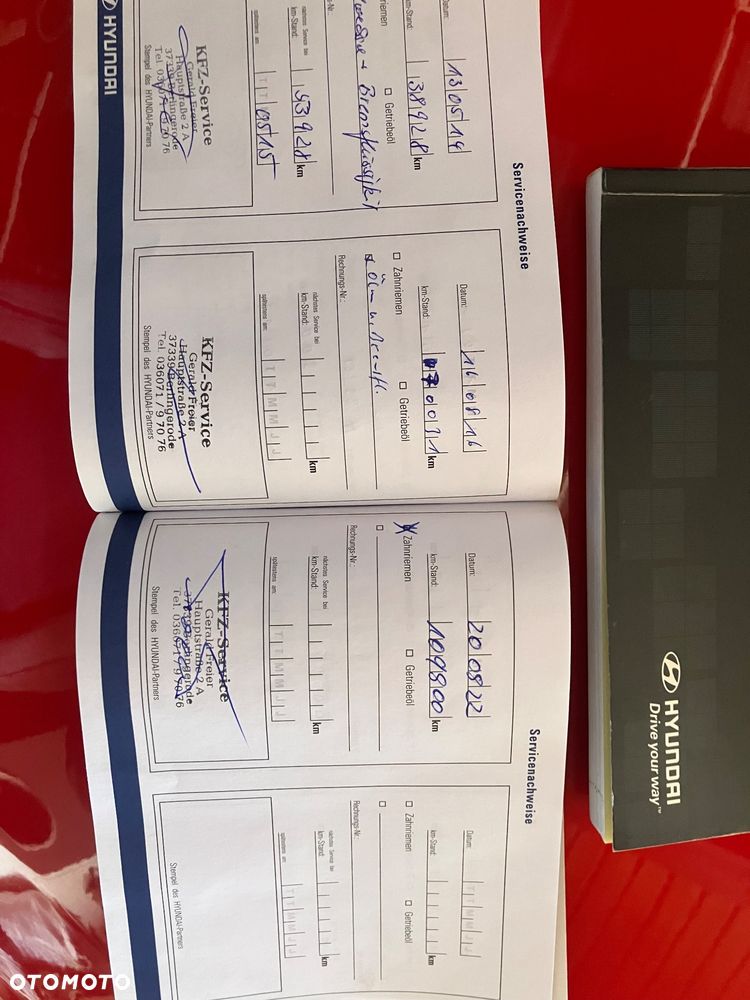 Servicenachweise
Datum:
13 05 14
km-Stand:
38928 km
Zahnriemen
Getriebeöl
+ Bremsflüssigkeit
Rechnungs-Nr.:
nächstes Service bei
km-Stand:
53928 km
spätestens am:
T T 05 15
KFZ-Service
Gerald Freier
Hauptstraße 2 A
37339 Berlingerode
Tel. 036071 / 9 70 76
Stempel des HYUNDAI-Partners
HYUNDAI
Datum:
16 08 16
km-Stand:
70071 km
Zahnriemen
Getriebeöl
Rechnungs-Nr.:
nächstes Service bei
km-Stand:
km
spätestens am:
T T M M J J
KFZ-Service
Gerald Freier
Hauptstraße 2 A
37339 Berlingerode
Tel. 036071 / 9 70 76
Stempel des HYUNDAI-Partners
Servicenachweise
Datum:
20 08 22
km-Stand:
109800 km
Zahnriemen
Getriebeöl
Rechnungs-Nr.:
nächstes Service bei
km-Stand:
km
spätestens am:
T T M M J J
KFZ-Service
Gerald Freier
Hauptstraße 2 A
37339 Berlingerode
Tel. 036071 / 9 70 76
Stempel des HYUNDAI-Partners
Datum:
T T M M J J
km-Stand:
km
Zahnriemen
Getriebeöl
Rechnungs-Nr.:
nächstes Service bei
km-Stand:
km
spätestens am:
T T M M J J
Stempel des HYUNDAI-Partners
HYUNDAI
Drive your way™
OTOMOTO